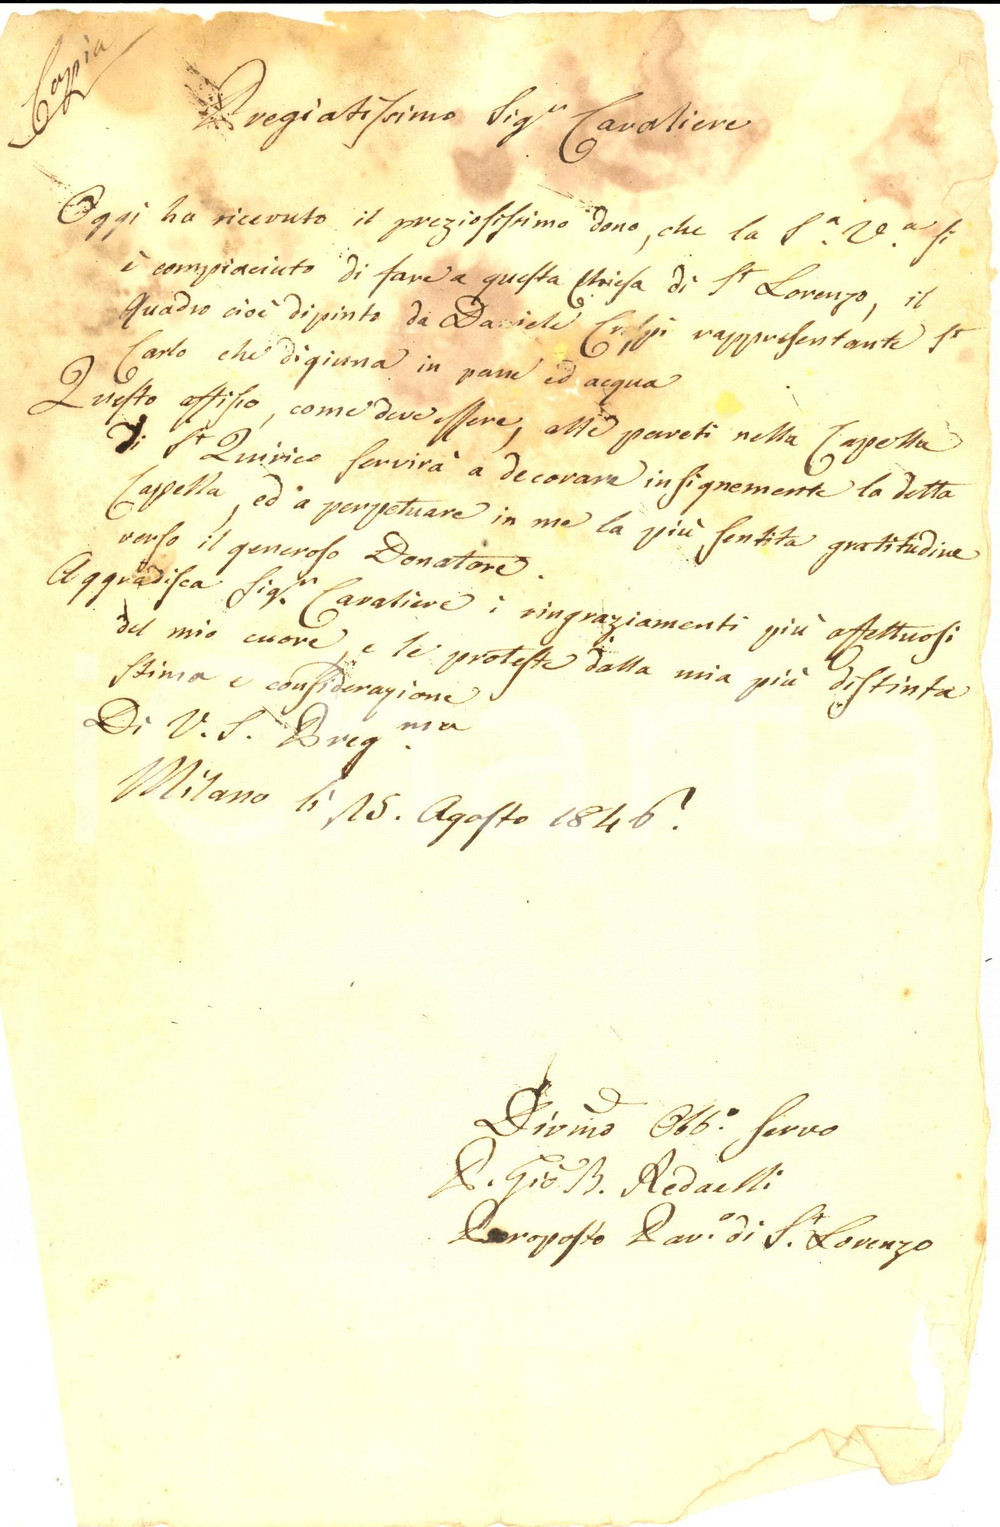 Copia
Pregiatissimo Sigr Cavaliere
Oggi ho ricevuto il preziosissimo dono, che la S.a V.a si
è compiaciuto di fare a questa Chiesa di St Lorenzo, il
Quadro cioè dipinto da Daniele Crespi rappresentante St
Carlo che digiuna in pane ed acqua
Questo affisso, come deve essere, alle pareti nella Capella
di St Quirico servirà a decorare insignemente la detta
Capella, ed a perpetuare in me la più sentita gratitudine
verso il generoso Donatore.
Aggradisca Sig.r Cavaliere i ringraziamenti più affettuosi
del mio cuore, e le proteste dalla mia più distinta
stima e considerazione
Di V. S. Preg.ma
Milano li 15. Agosto 1846.
Divmo Obb.o servo
P. Gio B. Redaelli
Proposto Par.o di S.t Lorenzo